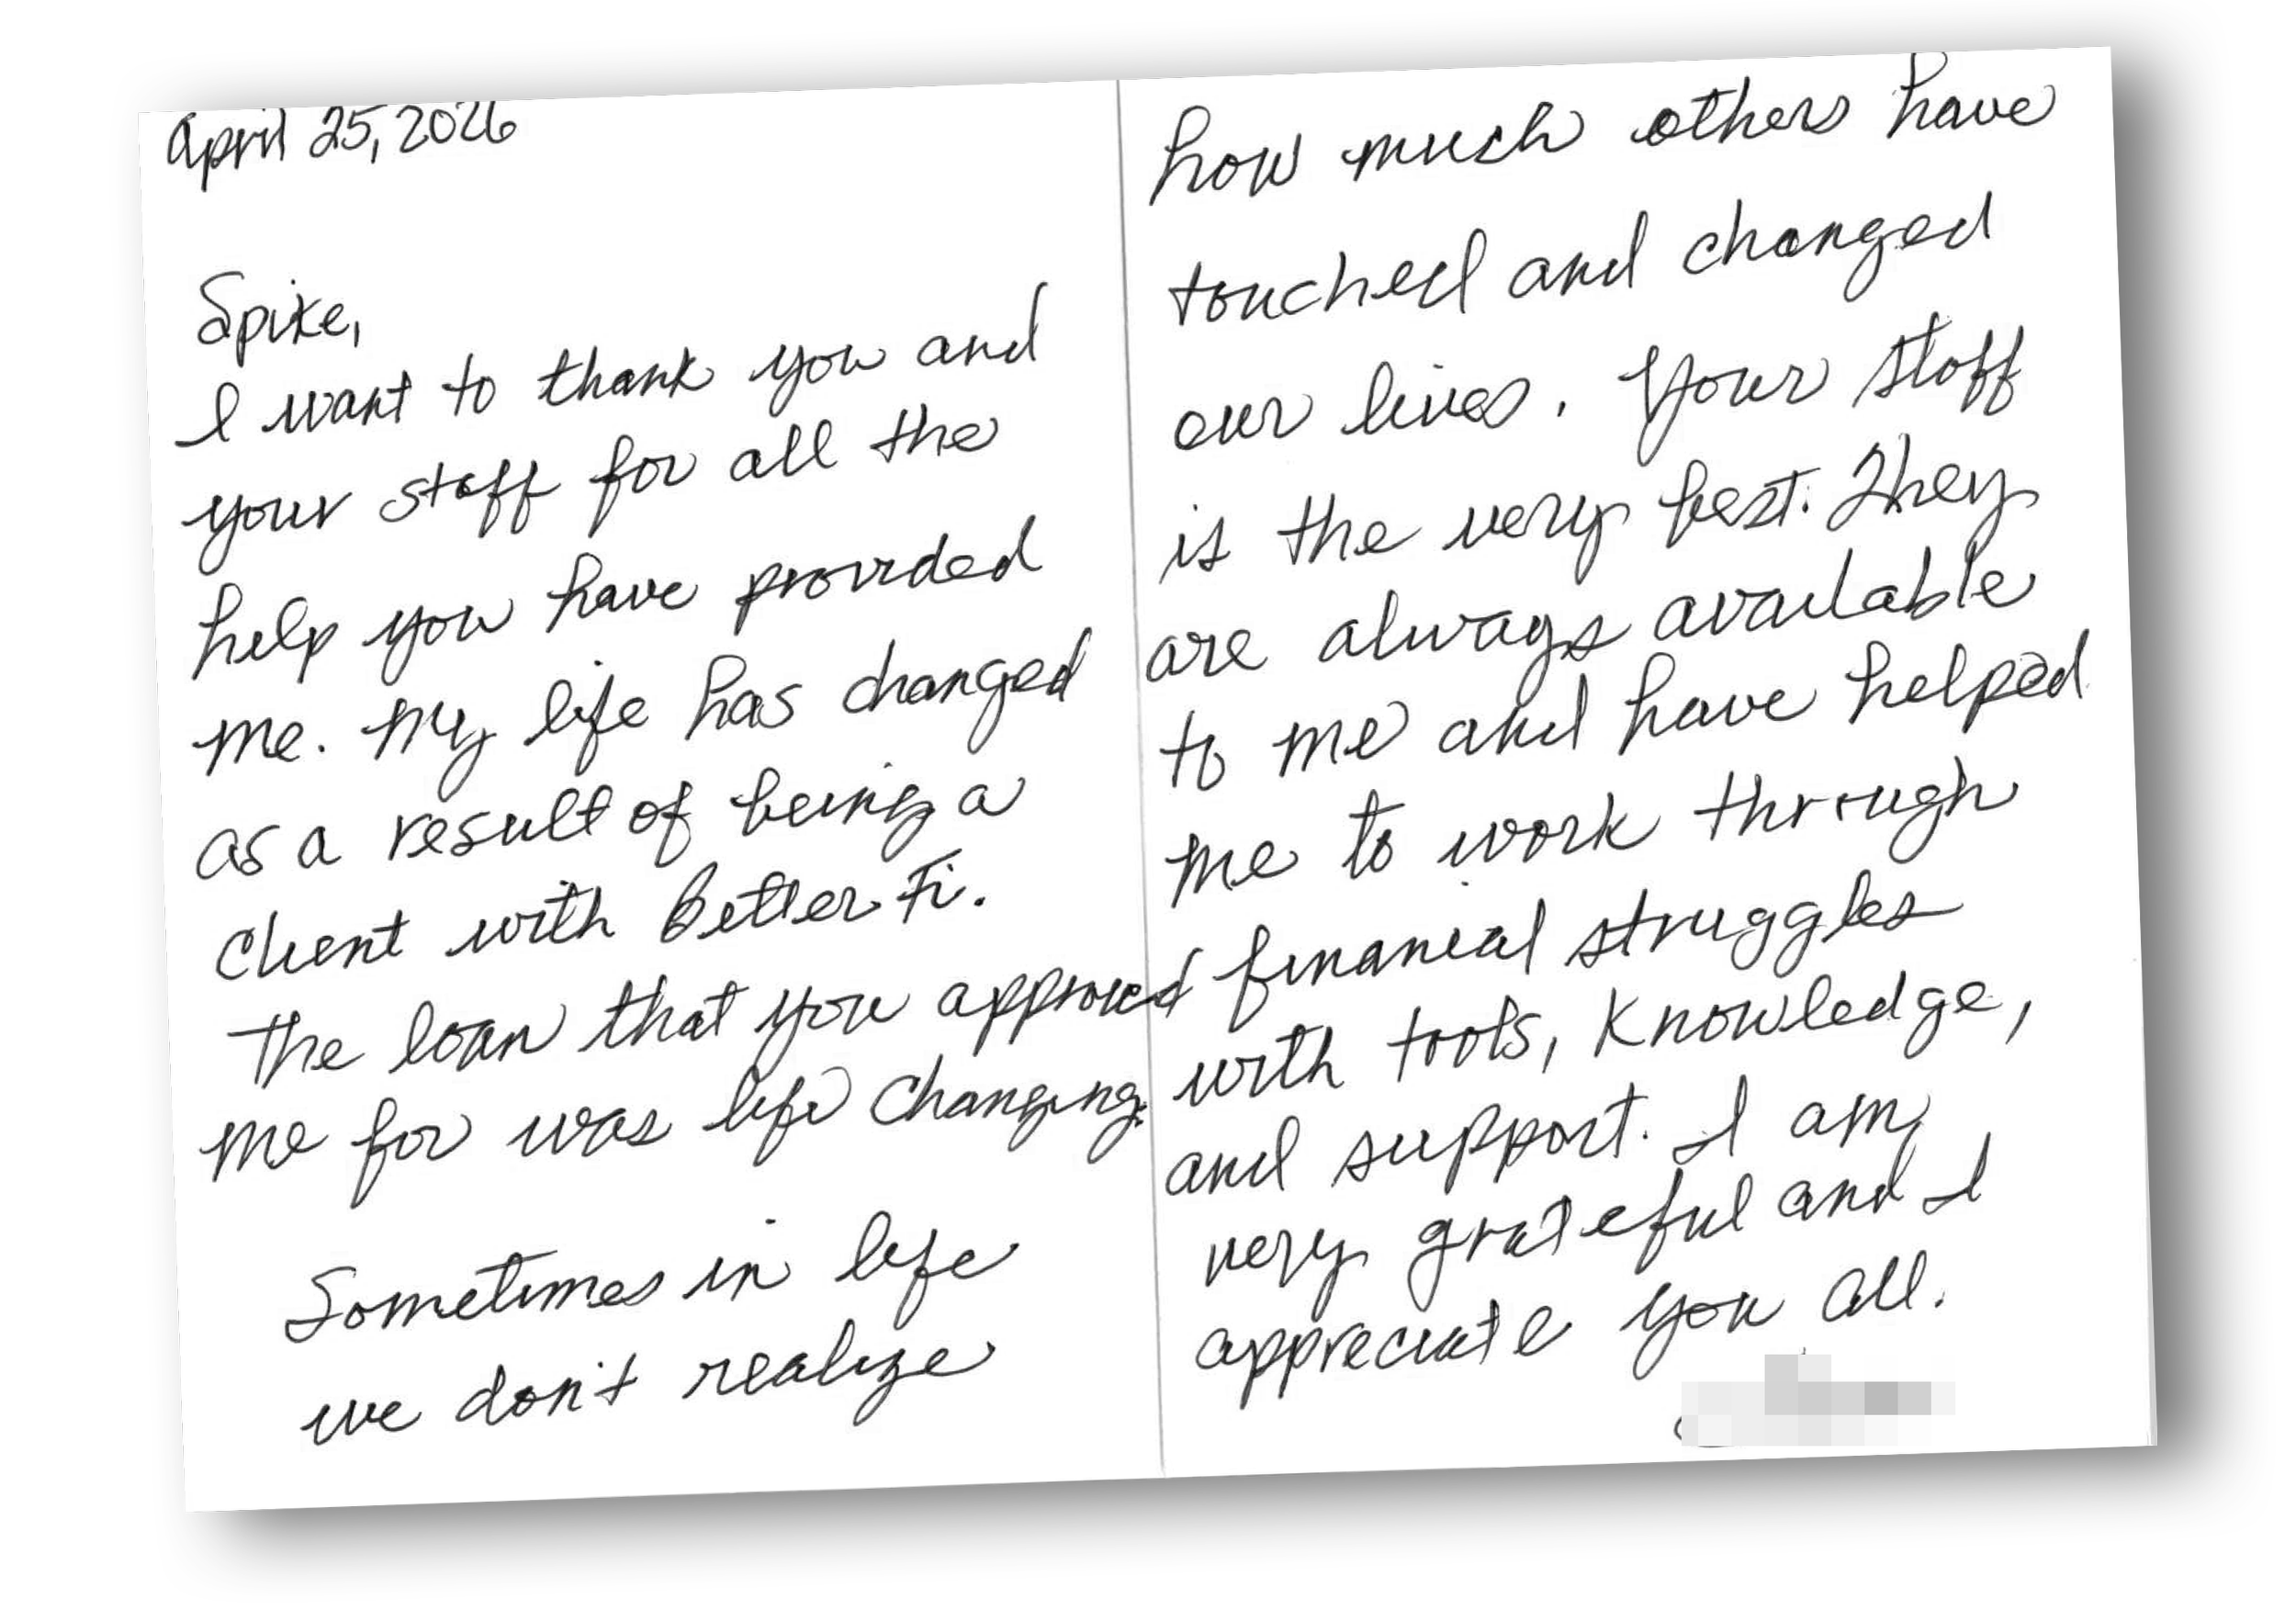 April 25, 2026
Spike,
I want to thank you and
your staff for all the
help you have provided
me. My life has changed
as a result of being a
client with Better Fi.
The loan that you approved
me for was life changing.
Sometimes in life
we don't realize
how much others have
touched and changed
our lives. Your staff
is the very best. They
are always available
to me and have helped
me to work through
financial struggles
with tools, knowledge,
and support. I am
very grateful and I
appreciate you all.